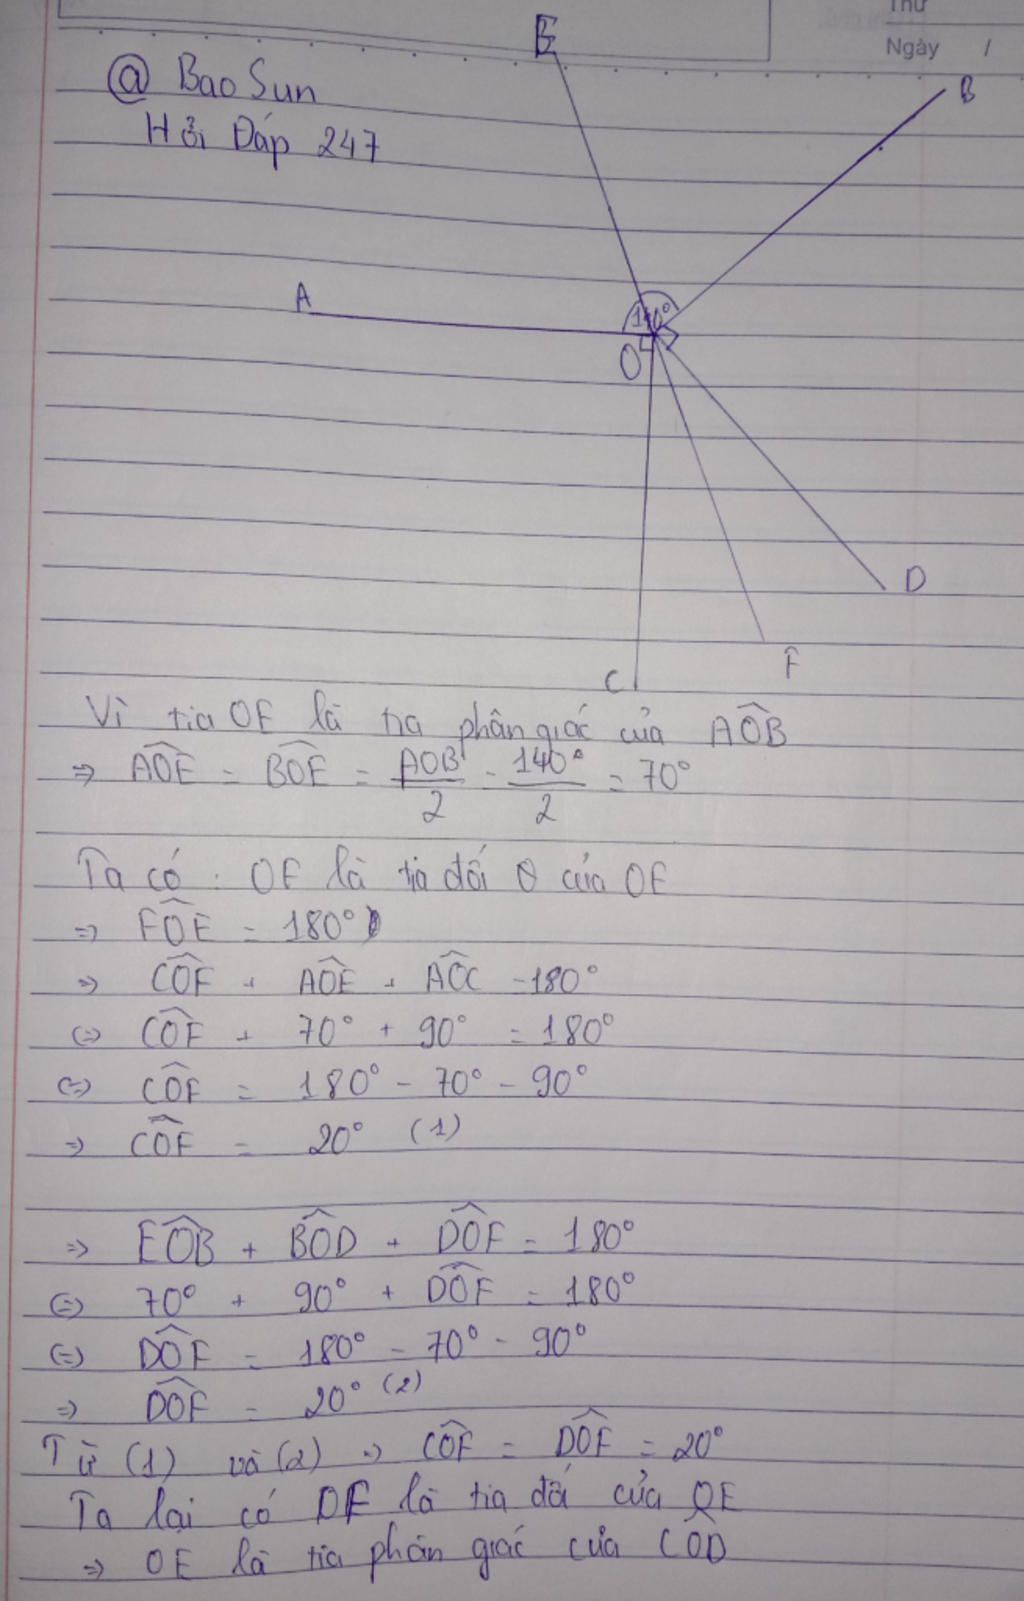 Thứ
Ngày /
@ Bao Sun
Hỏi Đáp 247
E
B
A
140°
O
D
F
C
Vì tia OE là tia phân giác của AÔB
=> AÔE = BÔE = AOB/2 = 140°/2 = 70°
Ta có : OF là tia đối của OE
=> FÔE = 180°
=> CÔF + AÔE + AÔC = 180°
<=> CÔF + 70° + 90° = 180°
<=> CÔF = 180° - 70° - 90°
=> CÔF = 20° (1)
=> EÔB + BÔD + DÔF = 180°
<=> 70° + 90° + DÔF = 180°
<=> DÔF = 180° - 70° - 90°
=> DÔF = 20° (2)
Từ (1) và (2) => CÔF = DÔF = 20°
Ta lại có OF là tia đối của OE
=> OE là tia phân giác của CÔD